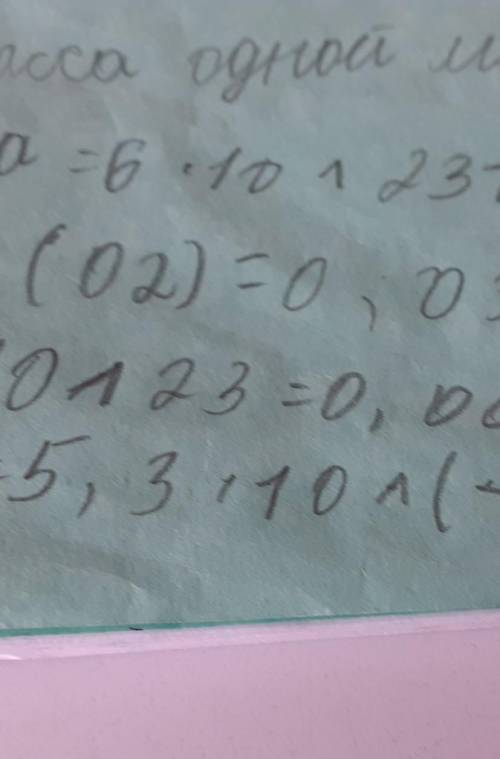 асса одной
а =6 · 10 ^ 23
(02) = 0, 03
10^23 = 0, 00
=5, 3 · 10 ^ (-